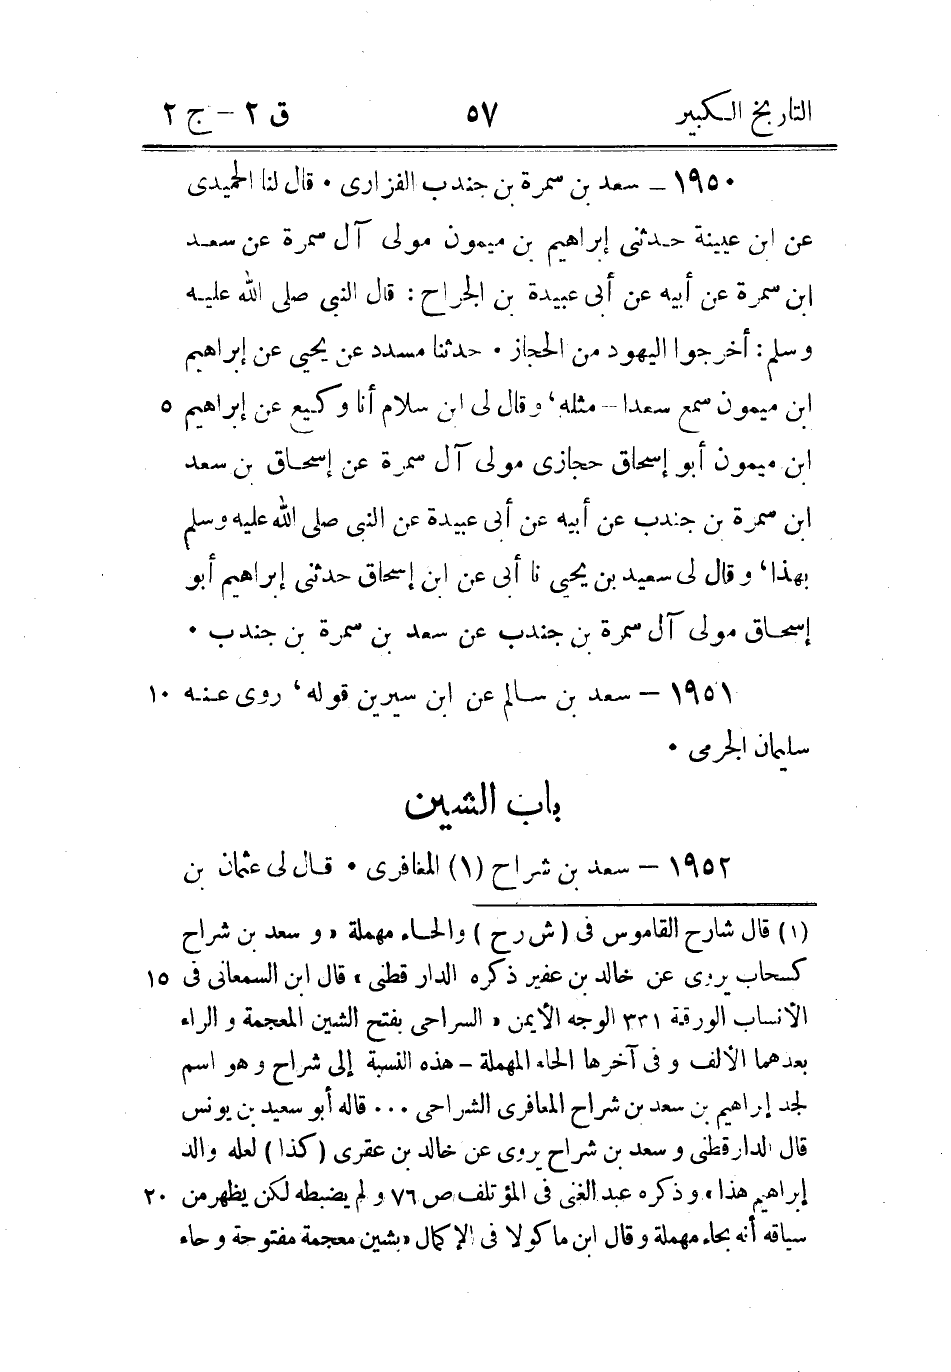 التاريخ الكبير ٥٧ ق ٢ - ج ٢
١٩٥٠ - سعد بن سمرة بن جندب الفزارى ٠ قال لنا الحميدى
عن ابن عيينة حدثنى إبراهيم بن ميمون مولى آل سمرة عن سعد
ابن سمرة عن أبيه عن أبى عبيدة بن الجراح : قال النبى صلى الله عليه
وسلم : أخرجوا اليهود من الحجاز ٠ حدثنا مسدد عن يحيى عن إبراهيم
ابن ميمون سمع سعدا - مثله‘ وقال لى ابن سلام أنا وكيع عن إبراهيم ٥
ابن ميمون أبو إسحاق حجازى مولى آل سمرة عن إسحاق بن سعد
ابن سمرة بن جندب عن أبيه عن أبى عبيدة عن النبى صلى الله عليه وسلم
بهذا‘ وقال لى سعيد بن يحيى نا أبى عن ابن إسحاق حدثنى إبراهيم أبو
إسحاق مولى آل سمرة بن جندب عن سعد بن سمرة بن جندب ٠
١٩٥١ - سعد بن سالم عن ابن سيرين قوله‘ روى عنه ١٠
سليمان الجرمى ٠
باب الشين
١٩٥٢ - سعد بن شراح (١) المغافرى ٠ قال لى عثمان بن
(١) قال شارح القاموس فى (ش ر ح) والحاء مهملة « و سعد بن شراح
كسحاب يروى عن خالد بن عفير ذكره الدار قطنى » قال ابن السمعانى فى ١٥
الأنساب الورقة ٣٣١ الوجه الأيمن « السراحى بفتح الشين المعجمة و الراء
بعدهما الألف و فى آخرها الحاء المهملة - هذه النسبة إلى شراح و هو اسم
لجد إبراهيم بن سعد بن شراح المعافرى الشراحى ... قاله أبو سعيد بن يونس
قال الدارقطنى و سعد بن شراح يروى عن خالد بن عقرى (كذا) لعله والد
إبراهيم هذا » و ذكره عبد الغنى فى المؤتلف ص ٧٦ و لم يضبطه لكن يظهر من ٢٠
سياقه أنه بحاء مهملة و قال ابن ماكولا فى الإكمال « بشين معجمة مفتوحة و حاء